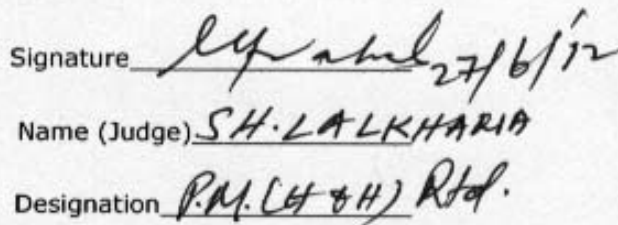 Signature 27/6/12
Name (Judge) SH. LALKHARIA
Designation P.M. (H & H) Rtd.